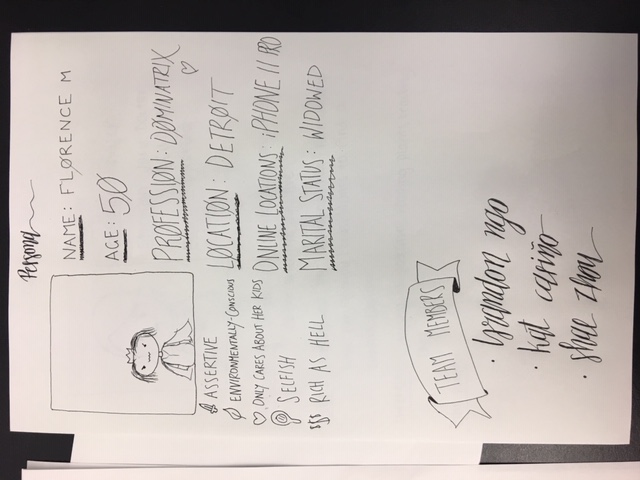 Persona
NAME: FLØRENCE M
AGE: 5Ø
PRØFESSIØN: DØMINATRIX
LØCATIØN: DETRØIT
ØNLINE LØCATIONS: iPHONE 11 PRO
MARITAL STATUS: WIDOWED
ASSERTIVE
ENVIRONMENTALLY-CONSCIOUS
ONLY CARES ABOUT HER KIDS
SELFISH
$$$ RICH AS HELL
TEAM MEMBERS
· brandon ngo
· kat cariño
· shae zhou